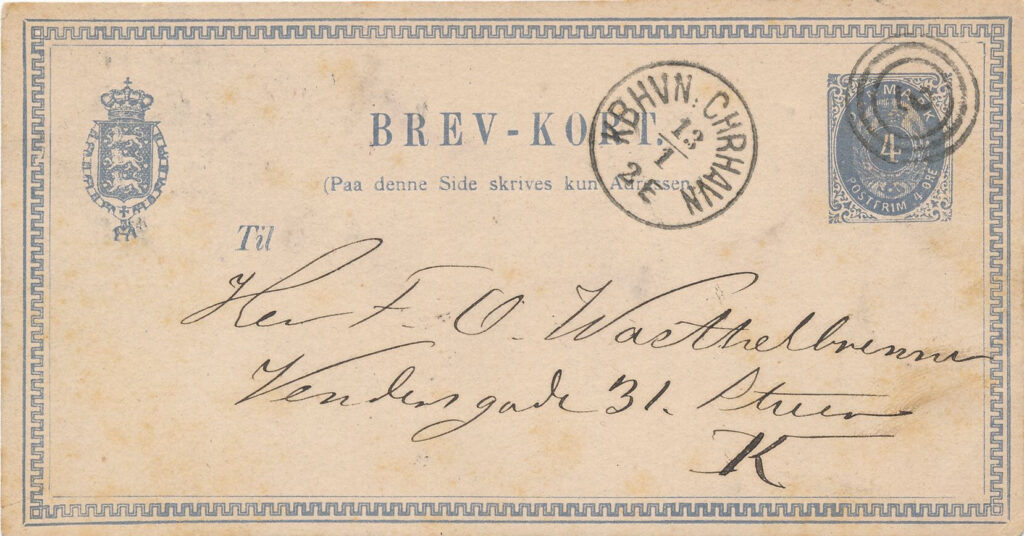 BREV-KORT.
(Paa denne Side skrives kun Adressen.)
KBHVN: CHRHAVN
13
1
2 E
4
POSTFRIM 4 ØRE
Til
Herr F. O.
Vendersgade 31. Stuen
K